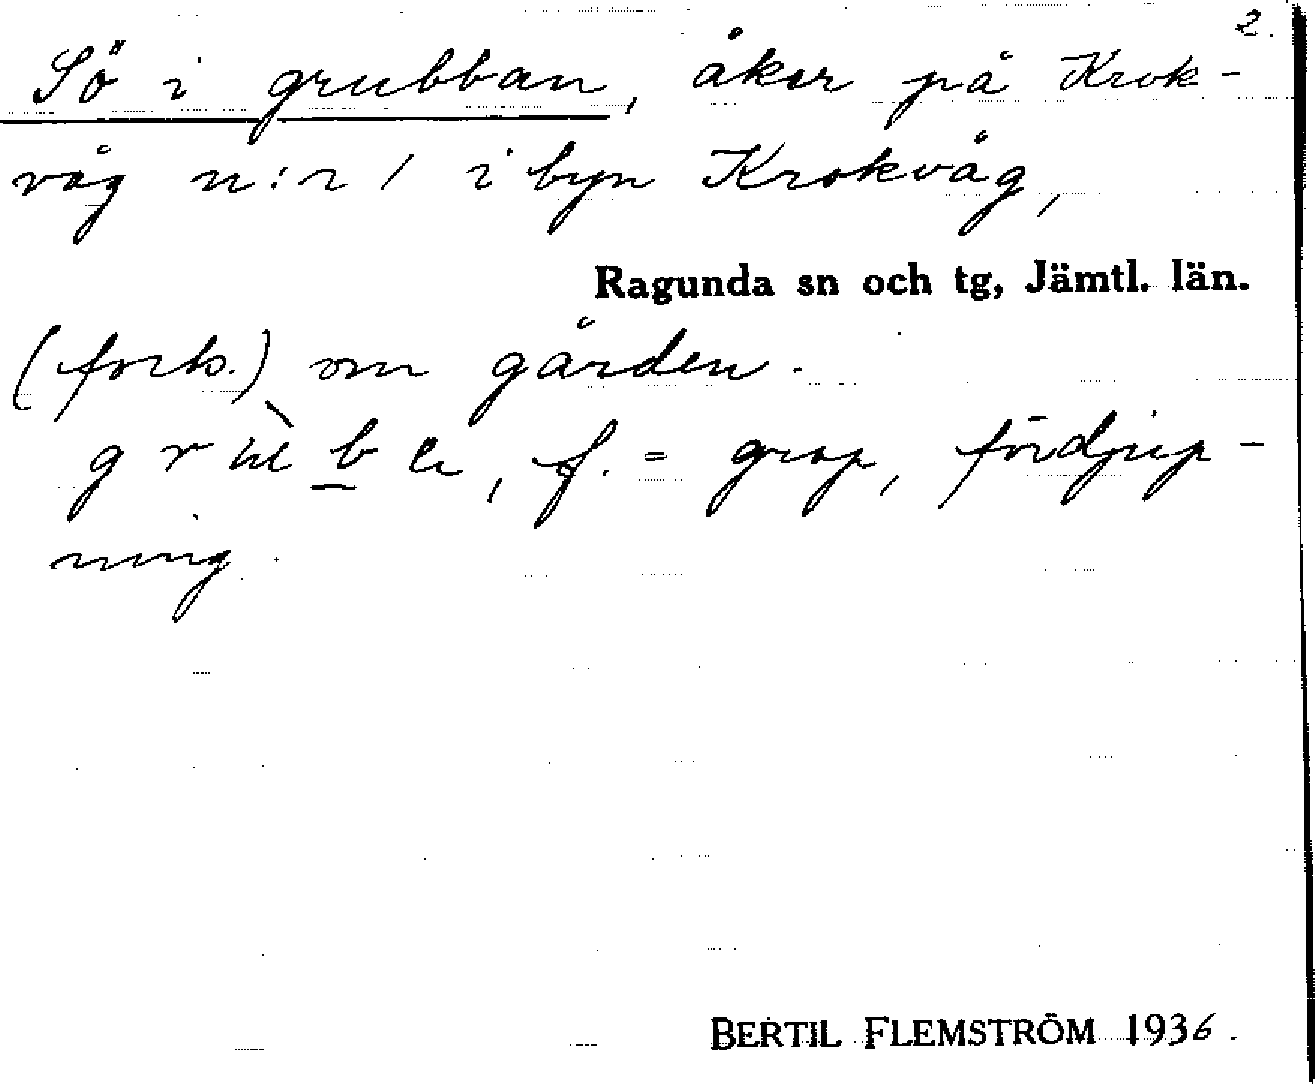 2.
Sö i grubban, åker på Krok-
våg n:r 1 i byn Krokvåg,
Ragunda sn och tg, Jämtl. län.
(forts.) om gården.
, f. = grop, fördjup-
ning.
BERTIL FLEMSTRÖM 1936.